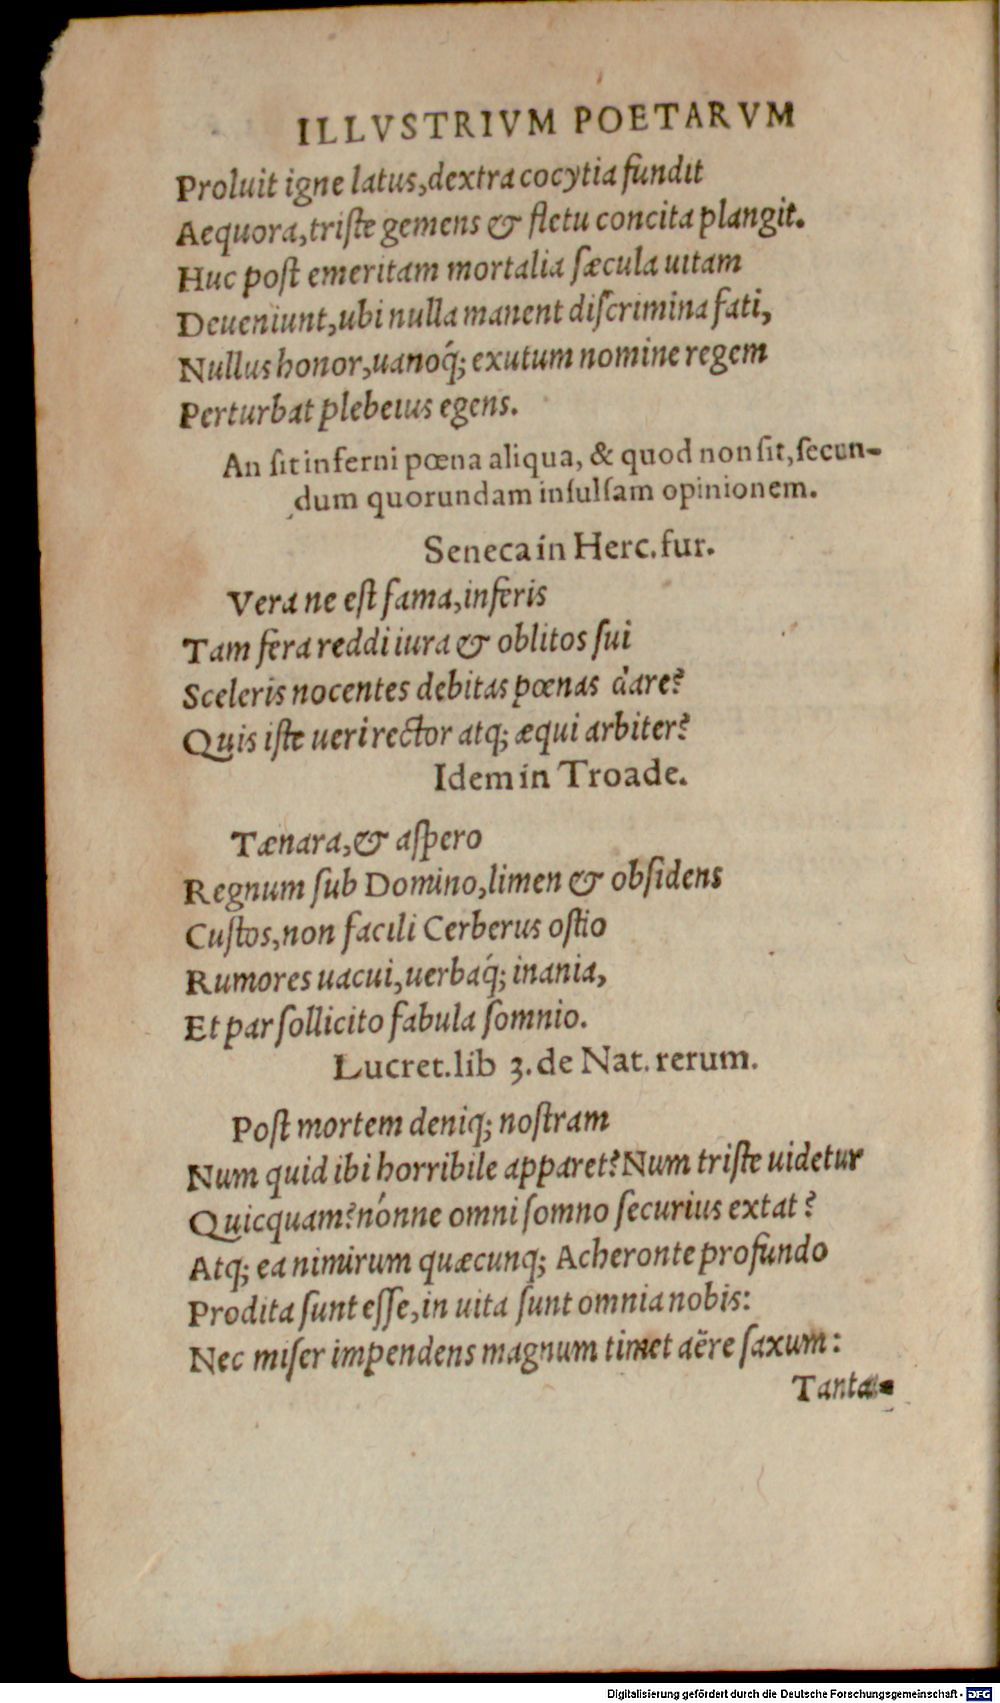 ILLVSTRIVM POETARVM
Proluit igne latus, dextra cocytia fundit
Aequora, triste gemens & fletu concita plangit.
Huc post emeritam mortalia sæcula uitam
Deueniunt, ubi nulla manent discrimina fati,
Nullus honor, uanoq́; exutum nomine regem
Perturbat plebeius egens.
An sit inferni pœna aliqua, & quod non sit, secun-
dum quorundam insulsam opinionem.
Seneca in Herc. fur.
Vera ne est fama, inferis
Tam fera reddi iura & oblitos sui
Sceleris nocentes debitas pœnas dare?
Quis iste ueri rector atq; æqui arbiter?
Idem in Troade.
Tænara, & aspero
Regnum sub Domino, limen & obsidens
Custos, non facili Cerberus ostio
Rumores uacui, uerbaq́; inania,
Et par sollicito fabula somnio.
Lucret. lib 3. de Nat. rerum.
Post mortem deniq; nostram
Num quid ibi horribile apparet? Num triste uidetur
Quicquam? nónne omni somno securius extat?
Atq; ea nimirum quæcunq; Acheronte profundo
Prodita sunt esse, in uita sunt omnia nobis:
Nec miser impendens magnum timet aëre saxum:
Tanta-
Digitalisierung gefördert durch die Deutsche Forschungsgemeinschaft - DFG